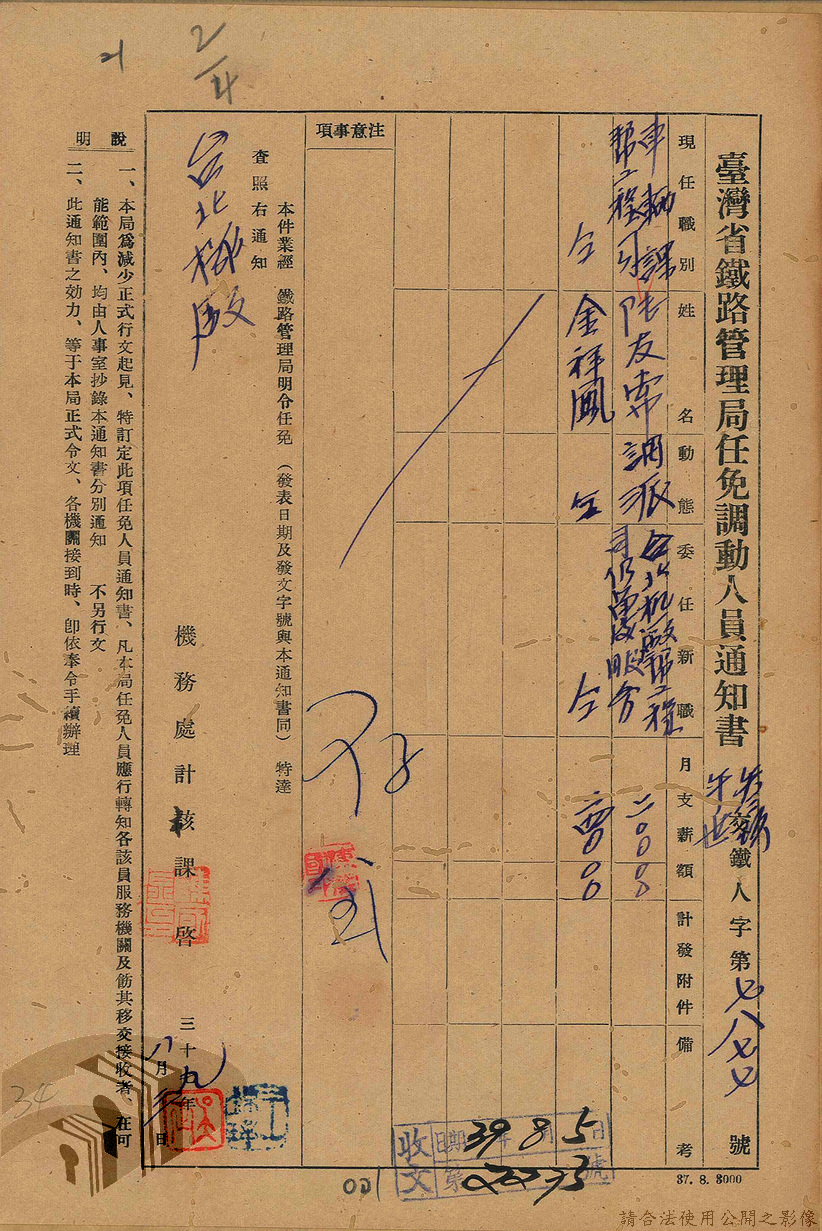 臺灣省鐵路管理局任免調動人員通知書
交鐵人字第七八七七號
現任職別
姓名
動態
委任新職
月支薪額
計發附件
備考
車輛課
幫工程司
調派
台北机廠幫工程
司仍舊服務
二〇〇
〇〇
仝
金祥鳳
仝
仝
一四〇
〇〇
注意事項
本件業經 鐵路管理局明令任免(發表日期及發文字號與本通知書同) 特達
查照右通知
台北機廠
機務處計核課啓
三十九年八月 日
說明
一、本局爲減少正式行文起見、特訂定此項任免人員通知書、凡本局任免人員應行轉知各該員服務機關及飭其移交接收者、在可
能範圍內、均由人事室抄錄本通知書分別通知 不另行文
二、此通知書之効力、等于本局正式令文、各機關接到時、卽依奉令手續辦理
收文
日期39年8月5日
第 號
37. 8. 3000
001
34
2/4
請合法使用公開之影像